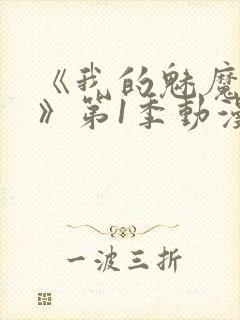 《我的魅魔
》第1季動漫
一波三折